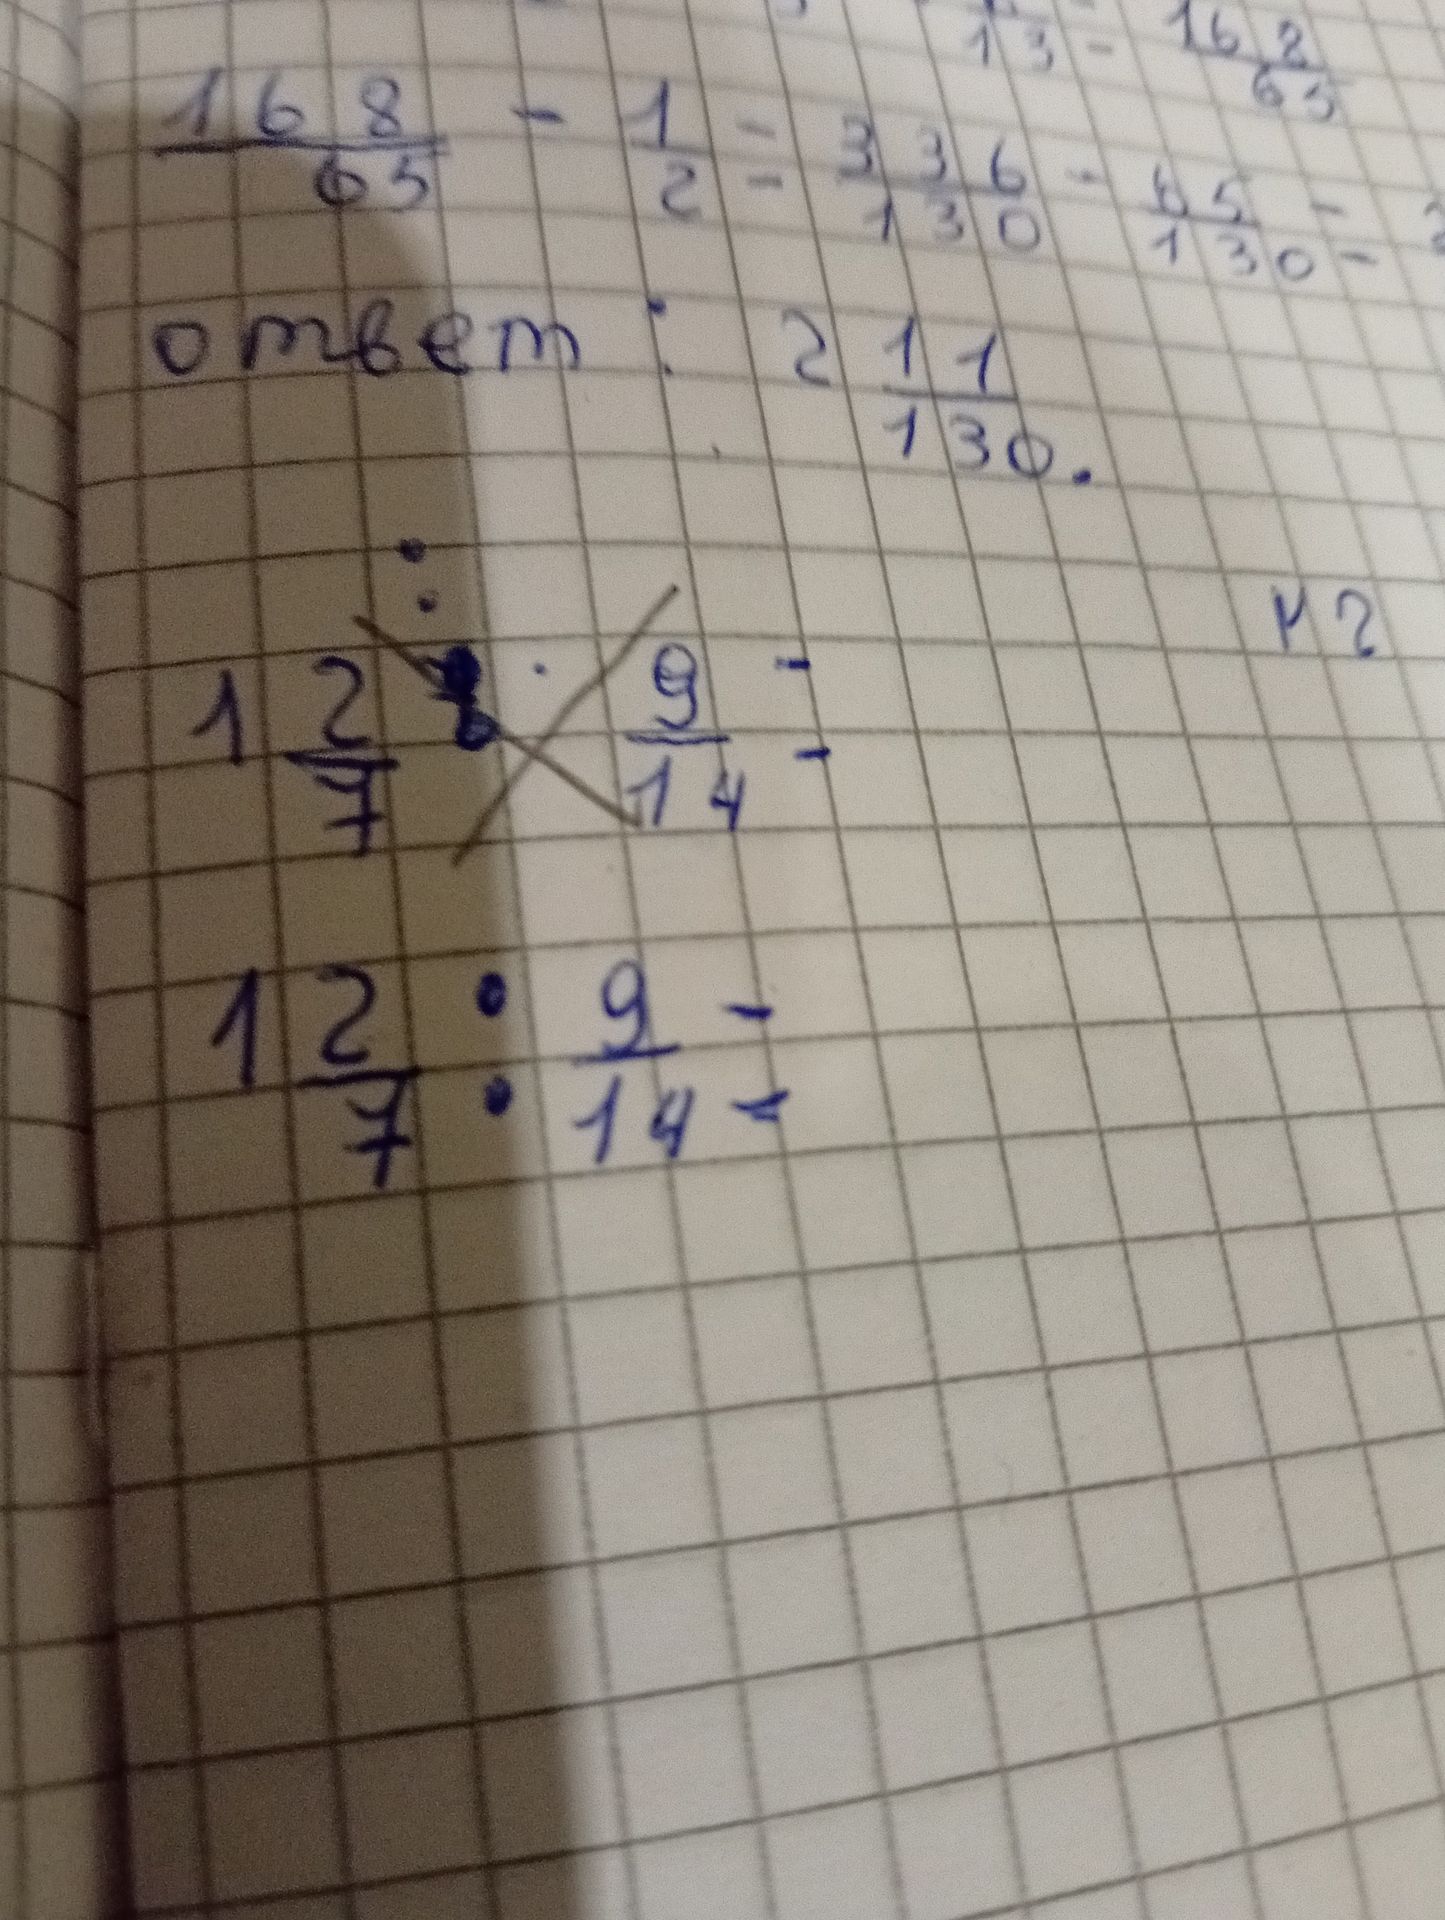 13 - 168/65
168/65 - 1/2 = 336/130 - 65/130 =
ответ: 2 11/130.
№2
1 2/7 · 9/14 =
1 2/7 : 9/14 =